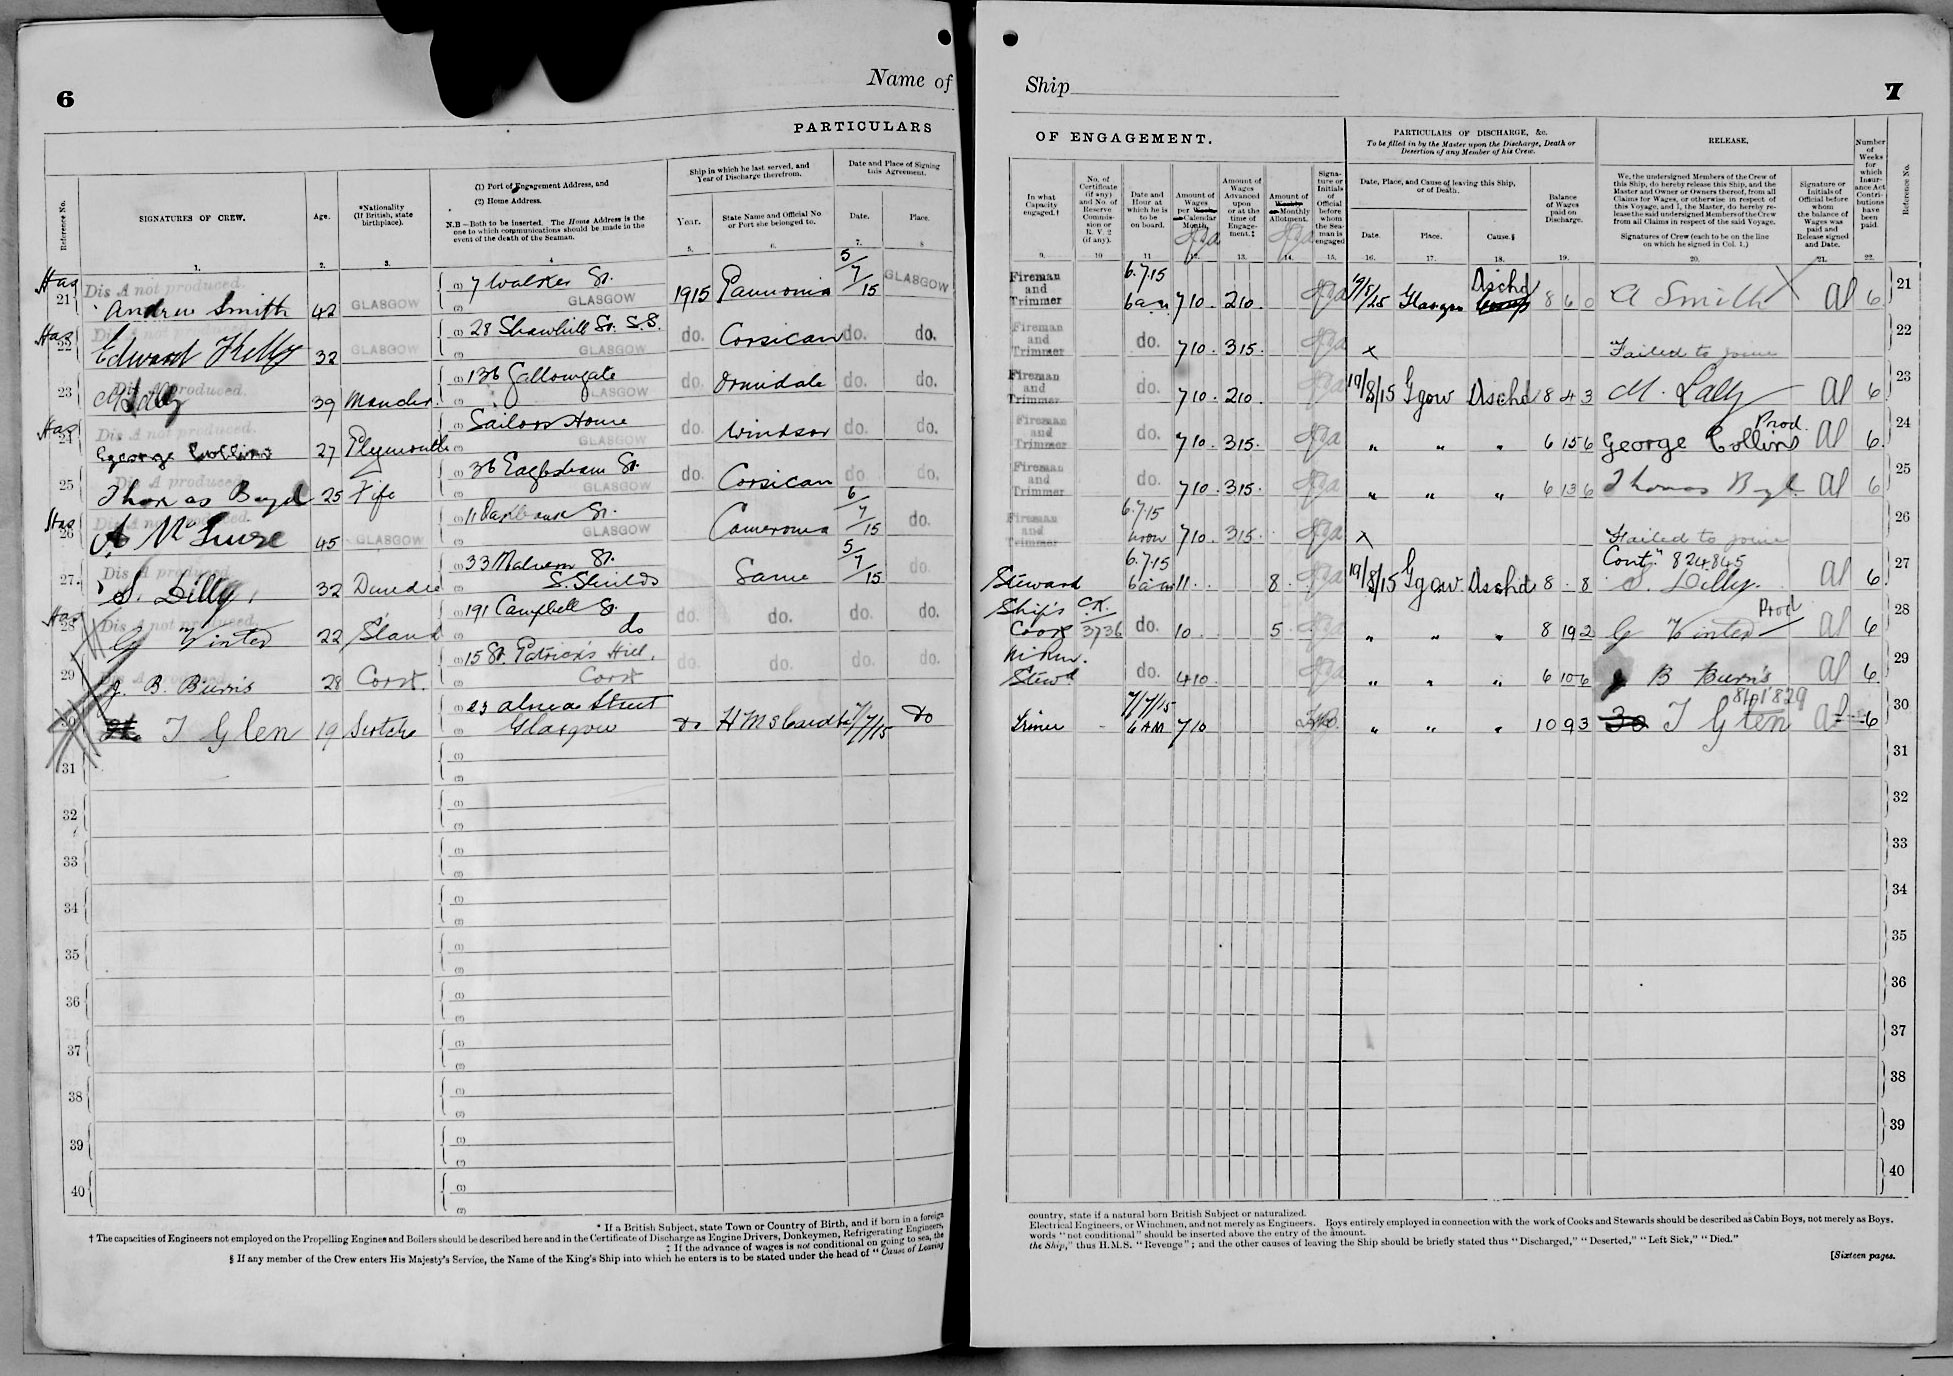 6
Name of
PARTICULARS
Reference No.
SIGNATURES OF CREW.
Age.
*Nationality
(If British, state
birthplace).
(1) Port of Engagement Address, and
(2) Home Address.
N.B—Both to be inserted. The Home Address is the
one to which communications should be made in the
event of the death of the Seaman.
Ship in which he last served, and
Year of Discharge therefrom.
Year.
State Name and Official No.
or Port she belonged to.
Date and Place of Signing
this Agreement.
Date.
Place.
1. 2. 3. 4 5. 6. 7. 8
21 Dis A not produced. Andrew Smith 42 GLASGOW (1) 7 Walker St. (2) GLASGOW 1915 Pannonia 5/7/15 GLASGOW
22 Dis A not produced. Edward Kelly 32 GLASGOW (1) 28 Shawhill St. S.S. (2) GLASGOW do. Corsican do. do.
23 Dis A produced. M Lally 39 Manchr. (1) 136 Gallowgate (2) GLASGOW do. Ormidale do. do.
24 Dis A not produced. George Collins 27 Plymouth (1) Sailors Home (2) GLASGOW do. Windsor do. do.
25 Dis A produced. Thomas Boyd 25 Fife (1) 36 Eaglesham St. (2) GLASGOW do. Corsican do. do.
26 Dis A not produced. 45 GLASGOW (1) St. (2) GLASGOW Cameronia 6/7/15 do.
27. Dis A produced. S. Lilly 32 Dundee (1) 33 Malvern St. (2) S. Shields Same 5/7/15 do.
28 Dis A not produced. G Winter 22 (1) 191 Campbell St. (2) do do. do. do. do.
29 J. B. Burns 28 Cork. (1) 15 St. Patrick's Hill, (2) Cork do. do. do. do.
30 T Glen 19 Scotch (1) Street (2) Glasgow do H M S 7/7/15 do
31 (1) (2)
32 (1) (2)
33 (1) (2)
34 (1) (2)
35 (1) (2)
36 (1) (2)
37 (1) (2)
38 (1) (2)
39 (1) (2)
40 (1) (2)
* If a British Subject, state Town or Country of Birth, and if born in a foreign
† The capacities of Engineers not employed on the Propelling Engines and Boilers should be described here and in the Certificate of Discharge as Engine Drivers, Donkeymen, Refrigerating Engineers,
‡ If the advance of wages is not conditional on going to sea, the
§ If any member of the Crew enters His Majesty's Service, the Name of the King's Ship into which he enters is to be stated under the head of "Cause of Leaving
Ship
7
OF ENGAGEMENT.
In what
Capacity
engaged.†
No. of
Certificate
(if any)
and No. of
Reserve
Commis-
sion or
R. V. 2
(if any).
Date and
Hour at
which he is
to be
on board.
Amount of
Wages
per Week
or Calendar
Month.
Amount of
Wages
Advanced
upon
or at the
time of
Engage-
ment.‡
Amount of
Weekly
or Monthly
Allotment.
Signa-
ture or
Initials
of
Official
before
whom
the Sea-
man is
engaged
PARTICULARS OF DISCHARGE, &c.
To be filled in by the Master upon the Discharge, Death or
Desertion of any Member of his Crew.
Date, Place, and Cause of leaving this Ship,
or of Death.
Date.
Place.
Cause.§
Balance
of Wages
paid on
Discharge.
RELEASE.
We, the undersigned Members of the Crew of
this Ship, do hereby release this Ship, and the
Master and Owner or Owners thereof, from all
Claims for Wages, or otherwise in respect of
this Voyage, and I, the Master, do hereby re-
lease the said undersigned Members of the Crew
from all Claims in respect of the said Voyage.
Signatures of Crew (each to be on the line
on which he signed in Col. 1.)
Signature or
Initials of
Official before
whom
the balance of
Wages was
paid and
Release signed
and Date.
Number
of
Weeks
for
which
Insur-
ance Act
Contri-
butions
have
been
paid.
Reference No.
9. 10 11 12. 13. 14. 15. 16. 17. 18. 19. 20. 21. 22.
Fireman and Trimmer 6.7.15 6 a.m 7 10 . 2 10 . 19/8/15 Glasgow Dischd 8 6 0 A Smith X Al 6 21
Fireman and Trimmer do. 7 10 . 3 15 . x Failed to join 22
Fireman and Trimmer do. 7 10 . 2 10 . 19/8/15 Ggow Dischd 8 4 3 M. Lally Al 6 23
Fireman and Trimmer do. 7 10 . 3 15 . " " " 6 15 6 George Collins Prod. Al 6. 24
Fireman and Trimmer do. 7 10 . 3 15 . " " " 6 13 6 Thomas Boyd. Al 6 25
Fireman and Trimmer 6.7.15 noon 7 10 . 3 15 . x Failed to join 26
Steward 6.7.15 6 a.m 11 . . 8 . 19/8/15 Ggow Dischd 8 . 8 Contn. 824845 S. Lilly. Al 6 27
Ship's Cook CK. 3736 do. 10 5 " " " 8 19 2 G Winter Prod Al 6 28
Stewd do. 4 10 . " " " 6 10 6 J B Burns Al 6 29
Trimer - 7/7/15 6 AM 7 10 " " " 10 9 3 30 T Glen Al 6 30
31
32
33
34
35
36
37
38
39
40
country, state if a natural born British Subject or naturalized.
Electrical Engineers, or Winchmen, and not merely as Engineers. Boys entirely employed in connection with the work of Cooks and Stewards should be described as Cabin Boys, not merely as Boys.
words "not conditional" should be inserted above the entry of the amount.
the Ship," thus H.M.S. "Revenge"; and the other causes of leaving the Ship should be briefly stated thus "Discharged," "Deserted," "Left Sick," "Died."
[Sixteen pages.